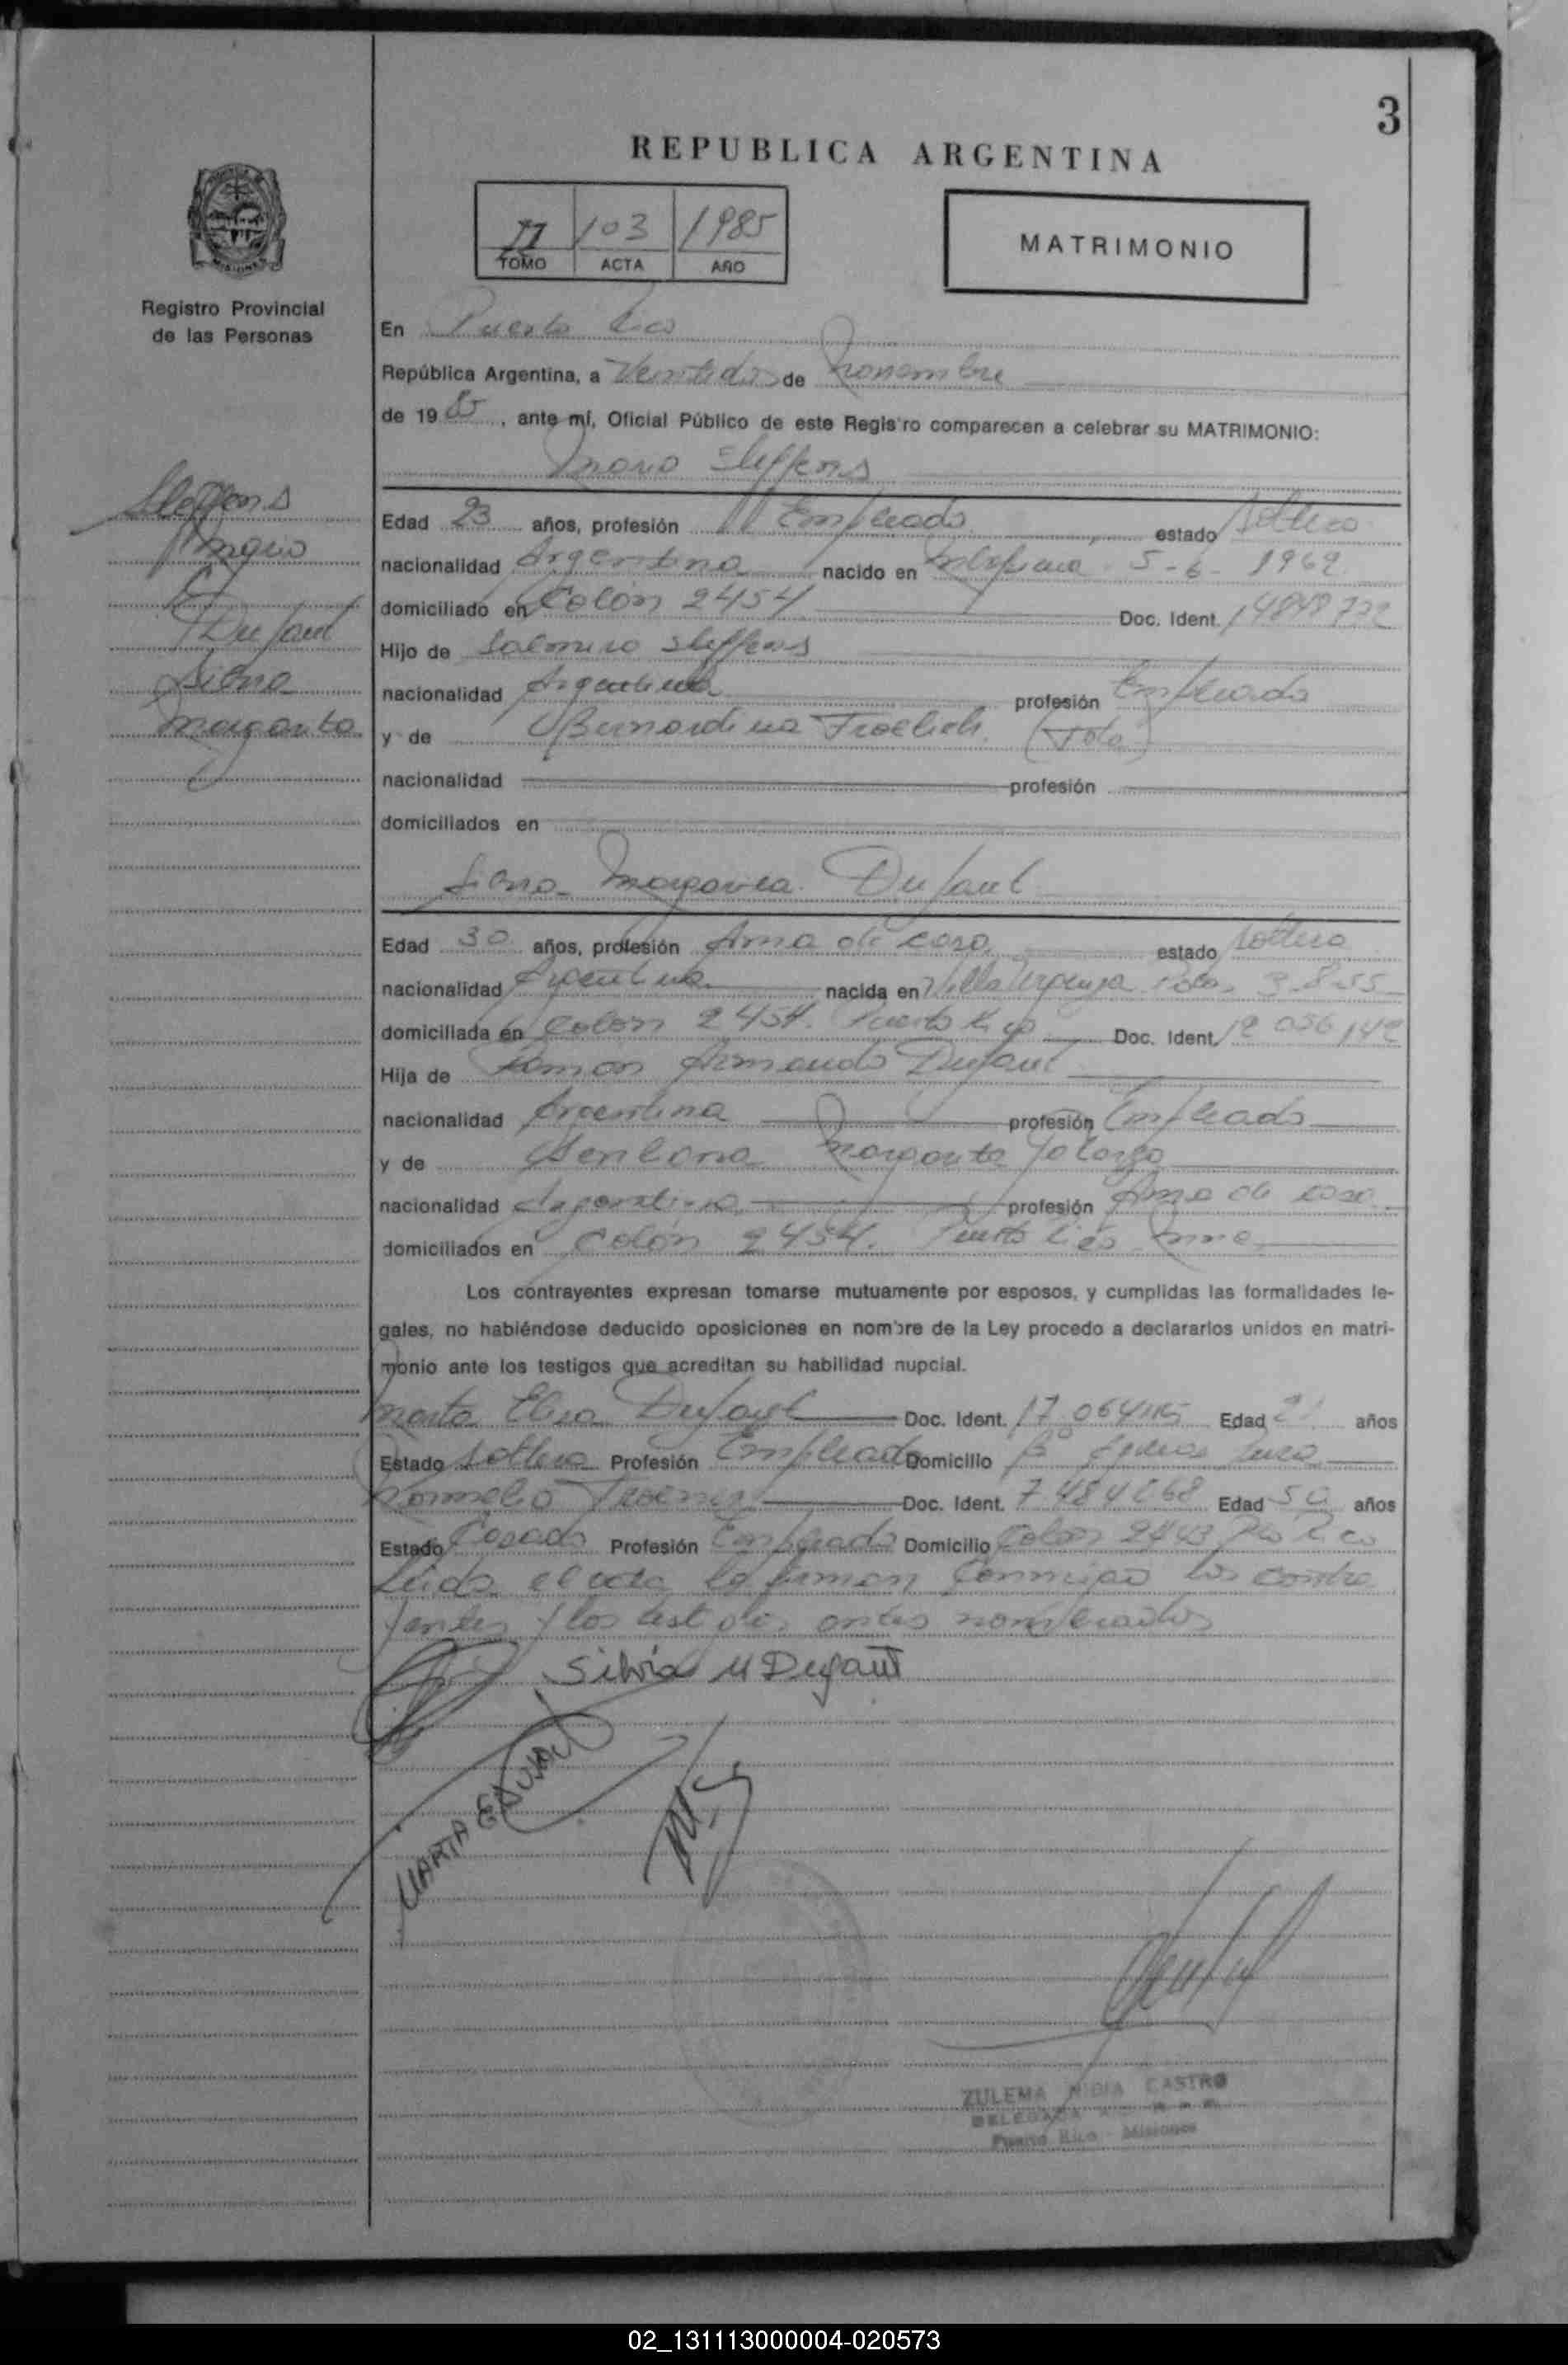 3
REPUBLICA ARGENTINA
II 103 1985
TOMO ACTA AÑO
MATRIMONIO
Registro Provincial
de las Personas
En Puerto Rico
República Argentina, a Veintidos de Noviembre
de 19 85, ante mí, Oficial Público de este Registro comparecen a celebrar su MATRIMONIO:
Mario Steffens
Steffens
Mario
y
Dufaut
Silvia
Margarita
Edad 23 años, profesión Empleado estado soltero
nacionalidad Argentina nacido en 5-6-1962
domiciliado en Colón 2454 Doc. Ident. 14848722
Hijo de Steffens
nacionalidad Argentina profesión Empleado
y de Bernardina Froelich
nacionalidad profesión
domiciliados en
Silvia Margarita Dufaut
Edad 30 años, profesión Ama de casa estado soltera
nacionalidad Argentina nacida en Villa Urquiza 3-8-55
domiciliada en Colón 2454. Puerto Rico Doc. Ident. 12 056 142
Hija de Ramón Armando Dufaut
nacionalidad Argentina profesión Empleado
y de Margarita
nacionalidad Argentina profesión Ama de casa
domiciliados en Colón 2454. Puerto Rico
Los contrayentes expresan tomarse mutuamente por esposos, y cumplidas las formalidades le-
gales, no habiéndose deducido oposiciones en nombre de la Ley procedo a declararlos unidos en matri-
monio ante los testigos que acreditan su habilidad nupcial.
Marta Dufaut Doc. Ident. 17 064 115 Edad 21 años
Estado soltera Profesión Empleada Domicilio
Doc. Ident. 7 484 268 Edad 50 años
Estado Casado Profesión Empleado Domicilio Colón 2443 Pto Rico
Leida el acta la firman conmigo los contra
yentes y los testigos antes nombrados
Silvia M Dufaut
MARTA E DUFAUT
ZULEMA NIDIA CASTRO
DELEGADA
Puerto Rico - Misiones
02_131113000004-020573